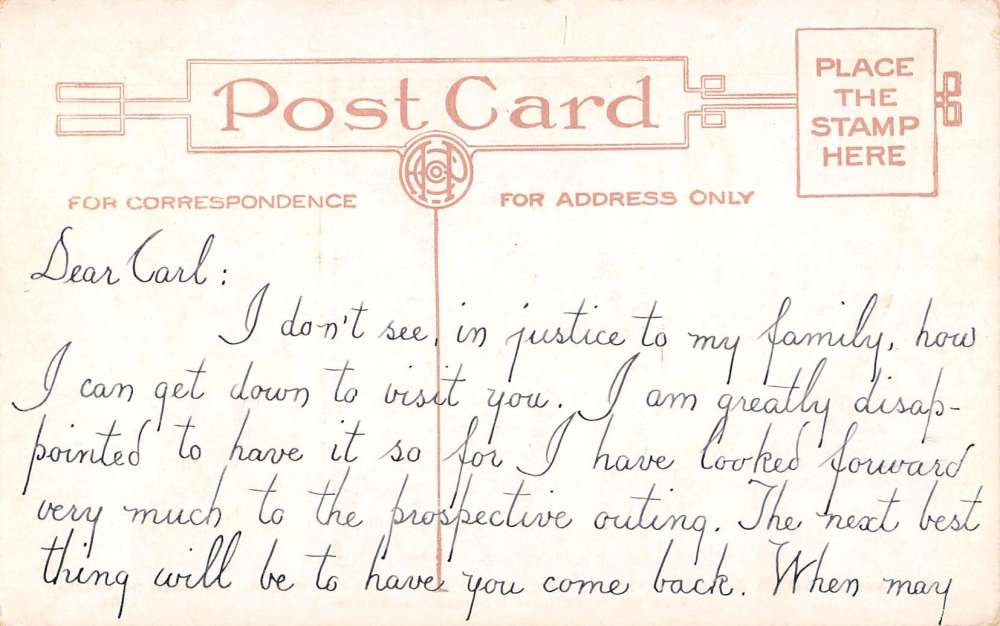 Post Card
PLACE
THE
STAMP
HERE
FOR CORRESPONDENCE
FOR ADDRESS ONLY
Dear Carl:
I don't see, in justice to my family, how
I can get down to visit you. I am greatly disap-
pointed to have it so for I have looked forward
very much to the prospective outing. The next best
thing will be to have you come back. When may